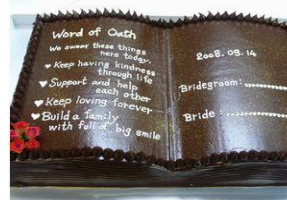 Word of Oath
We swear these things
here today.
♥ Keep having kindness
through life
♥ Support and help
each other
♥ Keep loving forever
♥ Build a family
with full of big smile
2008.09.14
Bridegroom:
Bride :